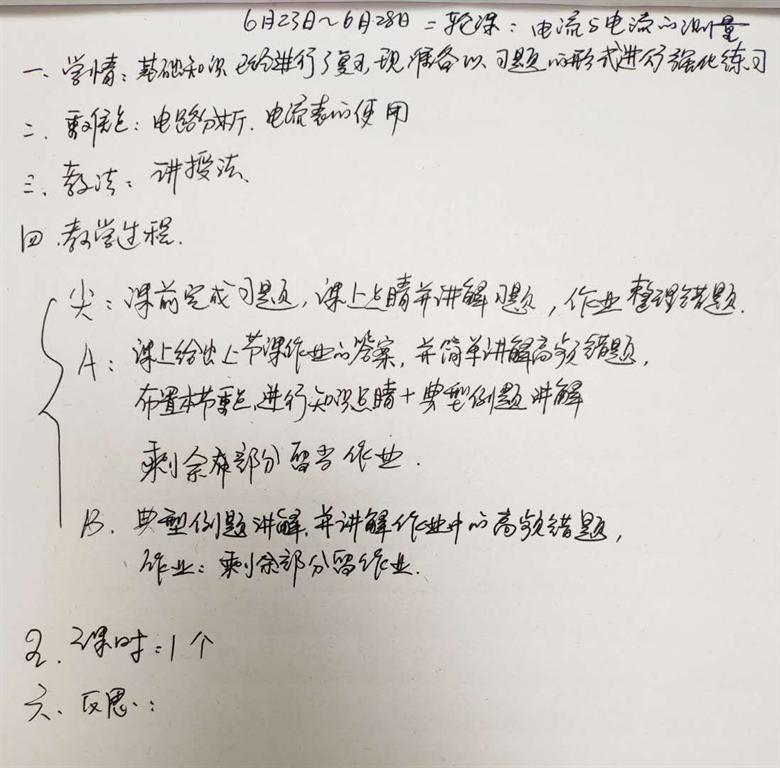 6月23日～6月28日 二轮课：电流与电流的测量
一、学情：基础知识已经进行了复习，现准备以习题的形式进行强化练习
二、重难点：电路分析、电流表的使用
三、教法：讲授法
四、教学过程.
尖：课前完成习题，课上点睛并讲解习题，作业整理错题.
A：课上给出上节课作业的答案，并简单讲解高频错题，
布置本节重点，进行知识点睛+典型例题讲解
剩余部分留为作业.
B、典型例题讲解，并讲解作业中的高频错题，
作业：剩余部分留作业.
五、课时：1个
六、反思：